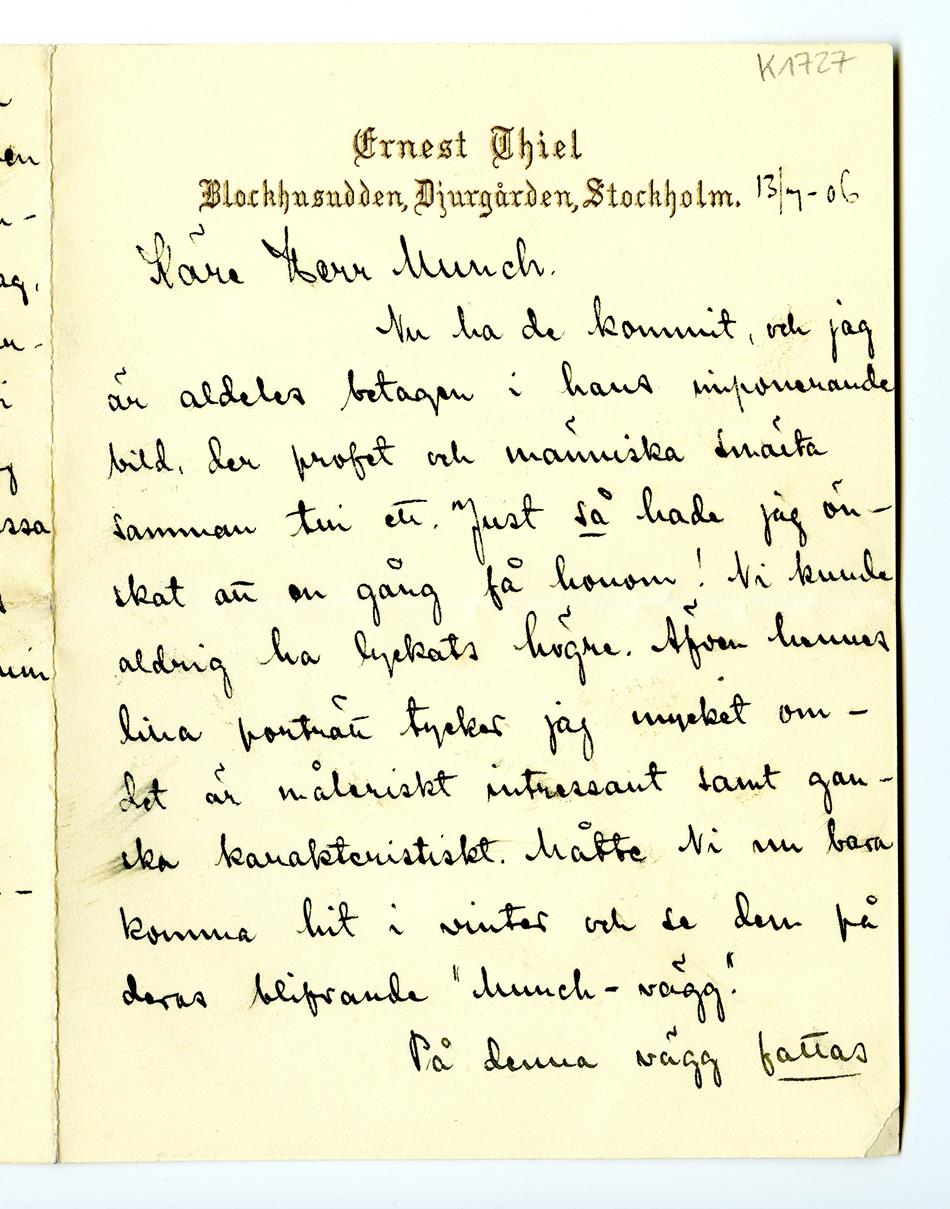 K1727
Ernest Thiel
Blockhusudden, Djurgården, Stockholm. 13/7-06
Käre Herr Munch.
Nu ha de kommit, och jag
är aldeles betagen i hans imponerande
bild, der profet och människa smälta
samman till ett. Just så hade jag ön-
skat att en gång få honom! Ni kunde
aldrig ha lyckats högre. Äfven hennes
lilla porträtt tycker jag mycket om -
det är måleriskt intressant samt gan-
ska karakteristiskt. Måtte Ni nu bara
komma hit i vinter och se dem på
deras blifvande "Munch-vägg."
På denna vägg fattas
en
ag,
i
g
ssa